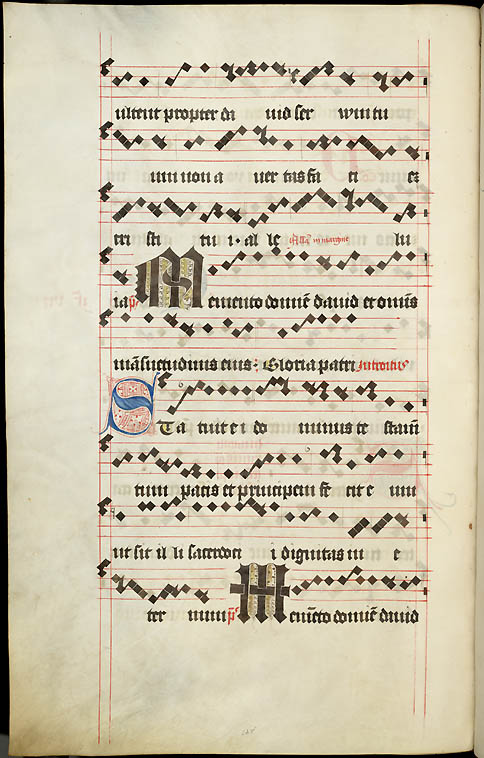 ultent propter da uid ser uum tu
um non a uer tas fa ci em
cri sti tu i · al le lu
ia p̄s Memento domie dauid et omis
mansuetudinis eius : Gloria patri Introitus
STa tuit e i do minus te stam
tum pacis et principem fe cit e um
ut sit il li sacerdoci i dignitas in e
ter num p̄s Memeto domie dauid